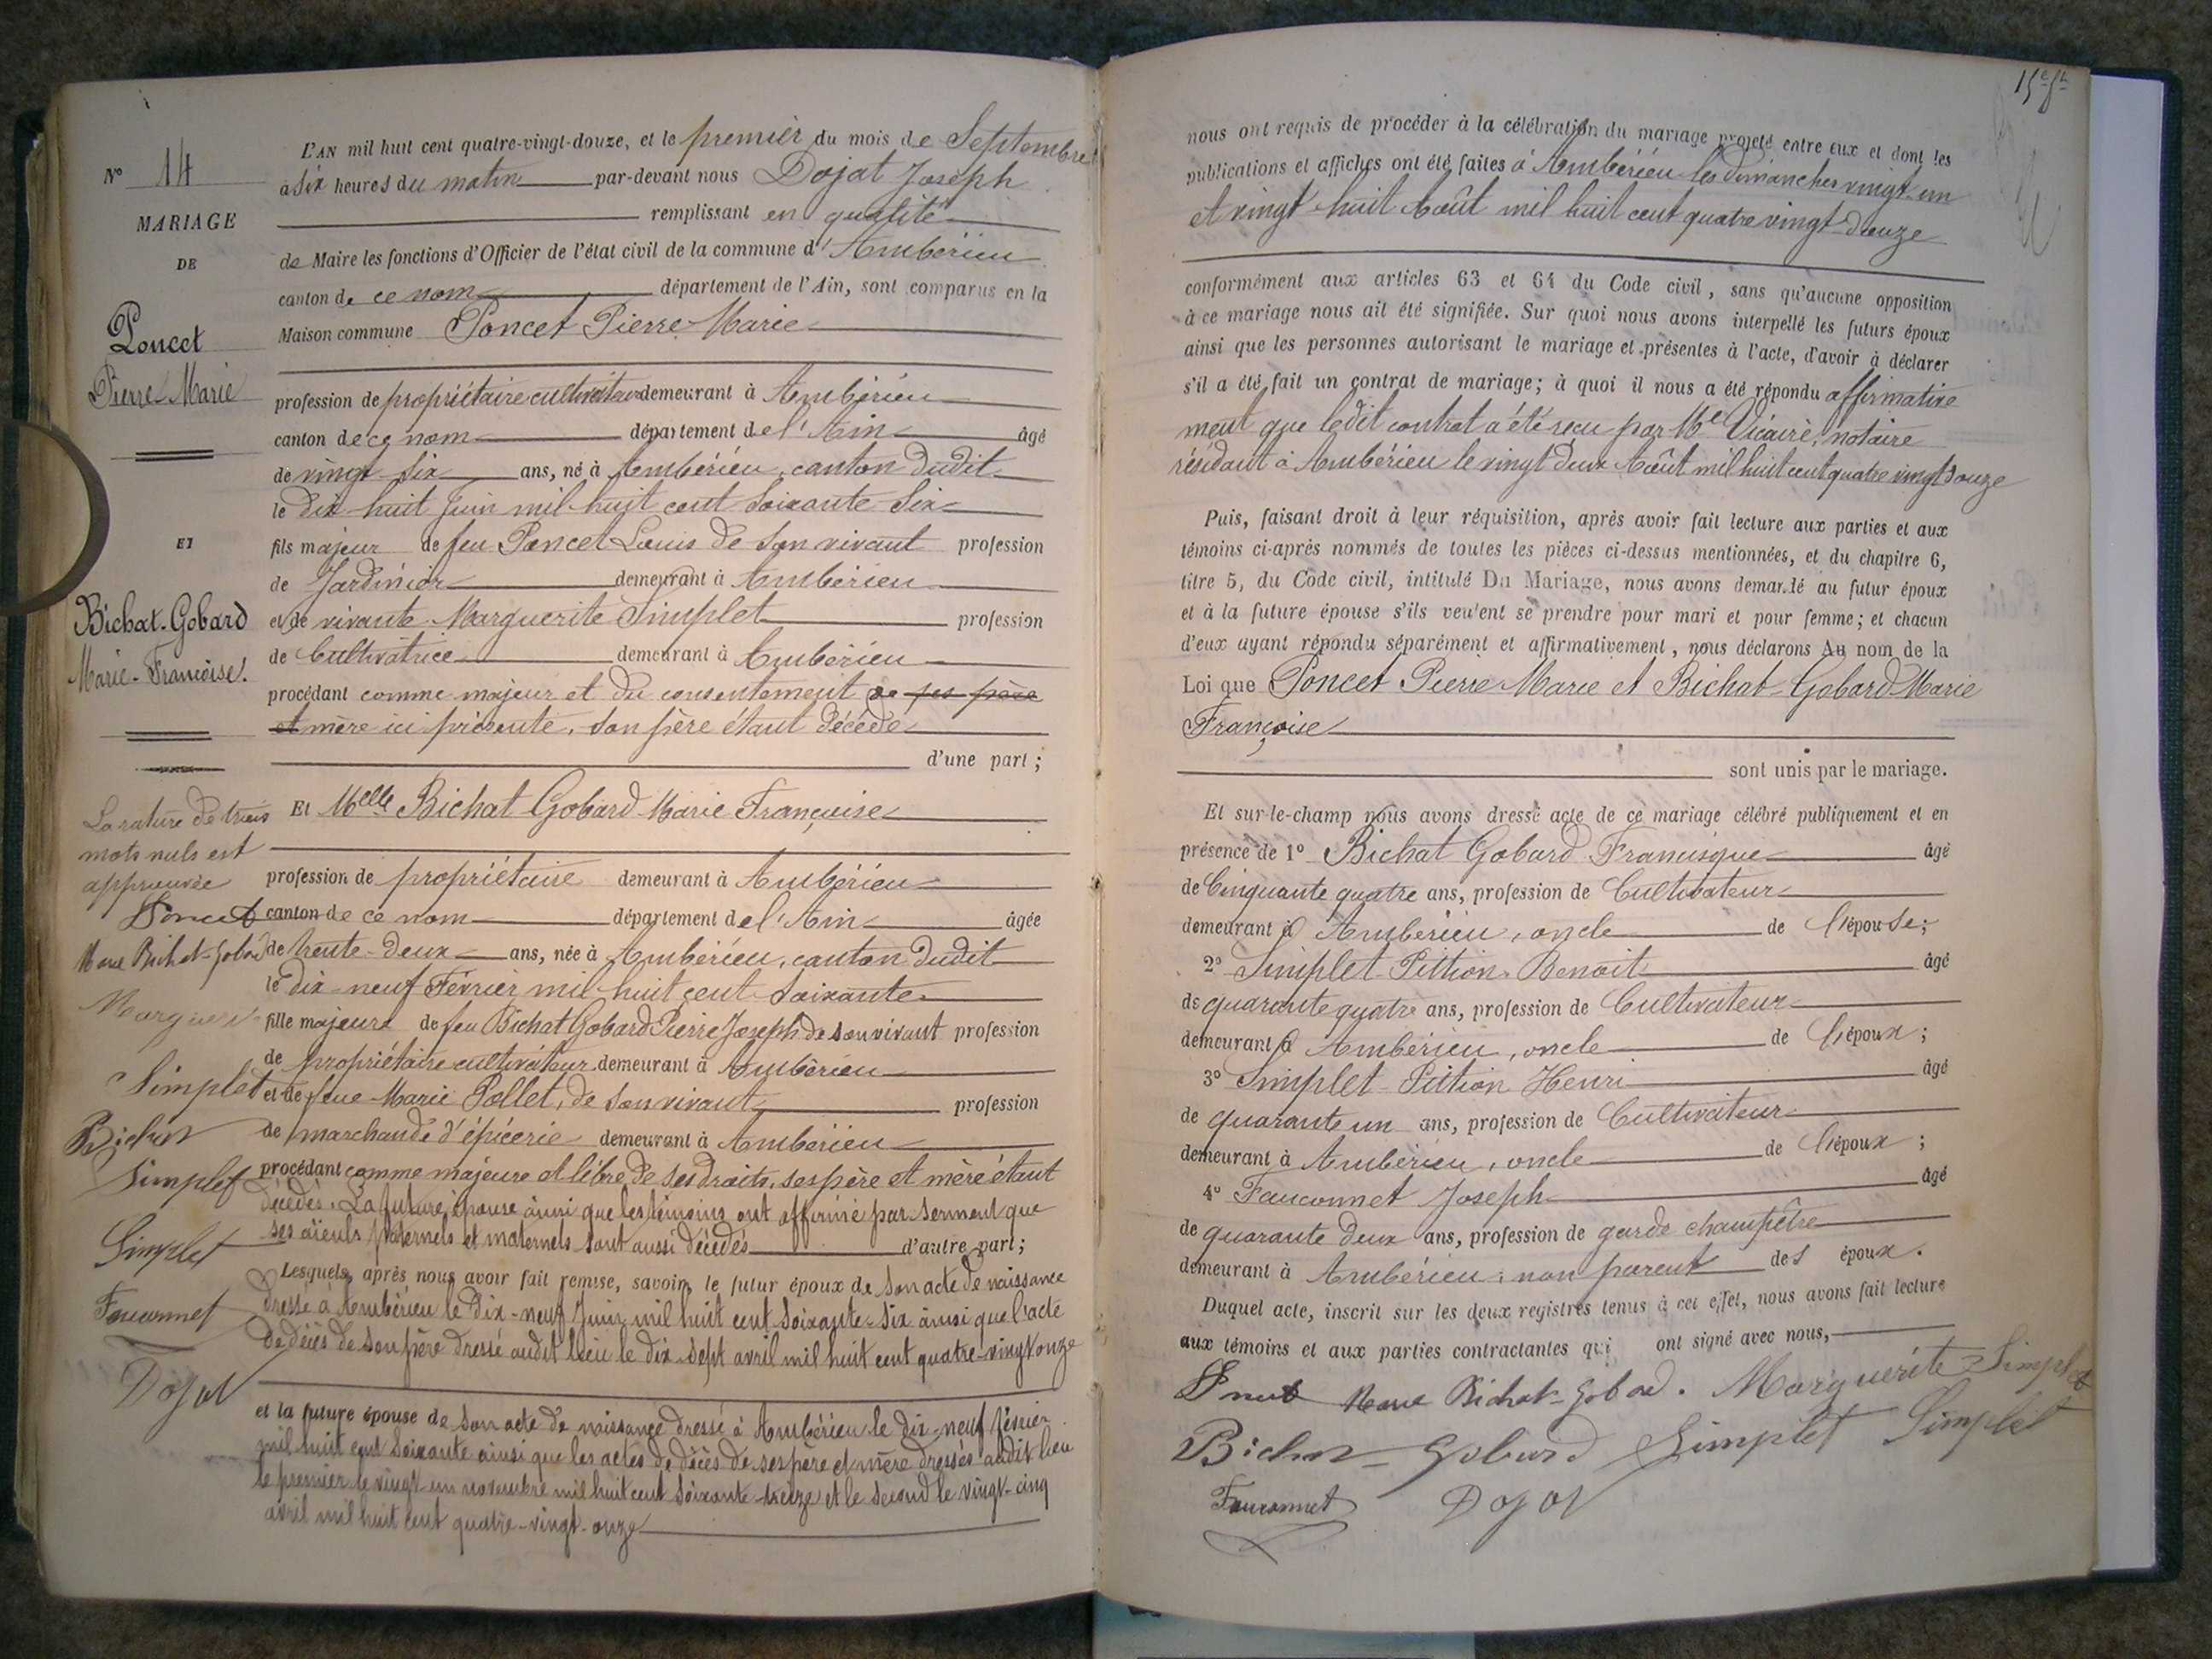 N° 14
MARIAGE
DE
Poncet
Pierre-Marie
ET
Bichat-Gobard
Marie-Françoise.
La rature de trois
mots nuls est
approuvée
Poncet
Marie Bichat-Gobard
Marguerite
Simplet
Bichat
Simplet
Simplet
Fauconnet
Dojat
L'AN mil huit cent quatre-vingt-douze, et le premier du mois de Septembre
à six heures du matin par-devant nous Dojat Joseph
remplissant en qualité
de Maire les fonctions d'Officier de l'état civil de la commune d'Ambérieu
canton de ce nom département de l'Ain, sont comparus en la
Maison commune Poncet Pierre-Marie
profession de propriétaire cultivateur demeurant à Ambérieu
canton de ce nom département de l'Ain âgé
de vingt-six ans, né à Ambérieu, canton dudit
le dix-huit Juin mil huit cent soixante-six
fils majeur de feu Poncet Louis de son vivant profession
de Jardinier demeurant à Ambérieu
et de vivante Marguerite Simplet profession
de Cultivatrice demeurant à Ambérieu
procédant comme majeur et du consentement de ses père
et mère ici présente, son père étant décédé
d'une part;
Et Melle Bichat-Gobard Marie Françoise
profession de propriétaire demeurant à Ambérieu
canton de ce nom département de l'Ain âgée
de trente-deux ans, née à Ambérieu, canton dudit
le dix-neuf Février mil huit cent soixante
fille majeure de feu Bichat Gobard Pierre Joseph de son vivant profession
de propriétaire cultivateur demeurant à Ambérieu
et de feue Marie Pollet, de son vivant profession
de marchande d'épicerie demeurant à Ambérieu
procédant comme majeure et libre de ses droits, ses père et mère étant
décédés. La future épouse ainsi que les témoins ont affirmé par serment que
ses aïeuls paternels et maternels sont aussi décédés d'autre part;
Lesquels, après nous avoir fait remise, savoir, le futur époux de son acte de naissance
dressé à Ambérieu le dix-neuf Juin mil huit cent soixante-six ainsi que l'acte
de décès de son père dressé audit lieu le dix-sept avril mil huit cent quatre-vingt onze
et la future épouse de son acte de naissance dressé à Ambérieu le dix-neuf février
mil huit cent soixante ainsi que les actes de décès de ses père et mère dressés audit lieu
le premier le vingt-un novembre mil huit cent soixante-treize et le second le vingt-cinq
avril mil huit cent quatre-vingt-onze
nous ont requis de procéder à la célébration du mariage projeté entre eux et dont les
publications et affiches ont été faites à Ambérieu les dimanches vingt-un
et vingt-huit Août mil huit cent quatre vingt-douze
conformément aux articles 63 et 64 du Code civil, sans qu'aucune opposition
à ce mariage nous ait été signifiée. Sur quoi nous avons interpellé les futurs époux
ainsi que les personnes autorisant le mariage et présentes à l'acte, d'avoir à déclarer
s'il a été fait un contrat de mariage; à quoi il nous a été répondu affirmative
ment que ledit contrat a été reçu par Me Vicaire, notaire
résidant à Ambérieu le vingt deux Août mil huit cent quatre vingt douze
Puis, faisant droit à leur réquisition, après avoir fait lecture aux parties et aux
témoins ci-après nommés de toutes les pièces ci-dessus mentionnées, et du chapitre 6,
titre 5, du Code civil, intitulé Du Mariage, nous avons demandé au futur époux
et à la future épouse s'ils veulent se prendre pour mari et pour femme; et chacun
d'eux ayant répondu séparément et affirmativement, nous déclarons Au nom de la
Loi que Poncet Pierre Marie et Bichat-Gobard Marie
Françoise
sont unis par le mariage.
Et sur-le-champ nous avons dressé acte de ce mariage célébré publiquement et en
présence de 1° Bichat Gobard Francisque âgé
de Cinquante quatre ans, profession de Cultivateur
demeurant à Ambérieu, oncle de l'épouse;
2° Simplet Pittion Benoit âgé
de quarante quatre ans, profession de Cultivateur
demeurant à Ambérieu, oncle de l'époux;
3° Simplet Pittion Henri âgé
de quarante un ans, profession de Cultivateur
demeurant à Ambérieu, oncle de l'époux;
4° Fauconnet Joseph âgé
de quarante deux ans, profession de garde champêtre
demeurant à Ambérieu, non parent des époux.
Duquel acte, inscrit sur les deux registres tenus à cet effet, nous avons fait lecture
aux témoins et aux parties contractantes qui ont signé avec nous,
Poncet Marie Bichat-Gobard. Marguerite Simplet
Bichat-Gobard Simplet Simplet
Fauconnet Dojat